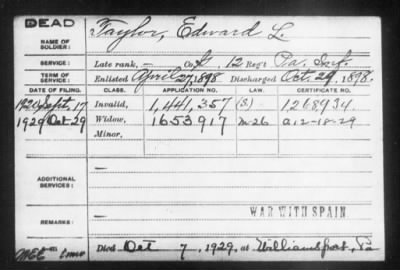 DEAD
NAME OF SOLDIER: Taylor, Edward L.
SERVICE: Late rank, — Co. 12 Reg't Pa. Inf.
TERM OF SERVICE: Enlisted April 27, 1898. Discharged Oct. 29, 1898.
DATE OF FILING. CLASS. APPLICATION NO. LAW. CERTIFICATE NO.
1920 Sept. 17 Invalid, 1,441,357 (S.) 1268934.
1929 Oct-29 Widow, 1653917 M-26 a12-18-29
Minor,
ADDITIONAL SERVICES: —
WAR WITH SPAIN
REMARKS: —
Died Oct 7, 1929, at Williamsport, Pa